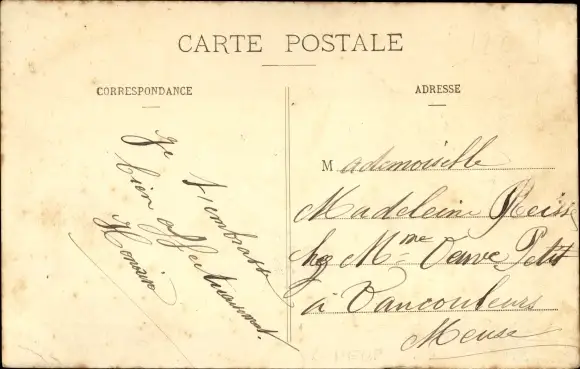 CARTE POSTALE
CORRESPONDANCE
Je t'embrasse
bien affectueusement.
Honorine
ADRESSE
Mademoiselle
Madeleine
chez Mme Veuve Petit
à Vaucouleurs
Meuse